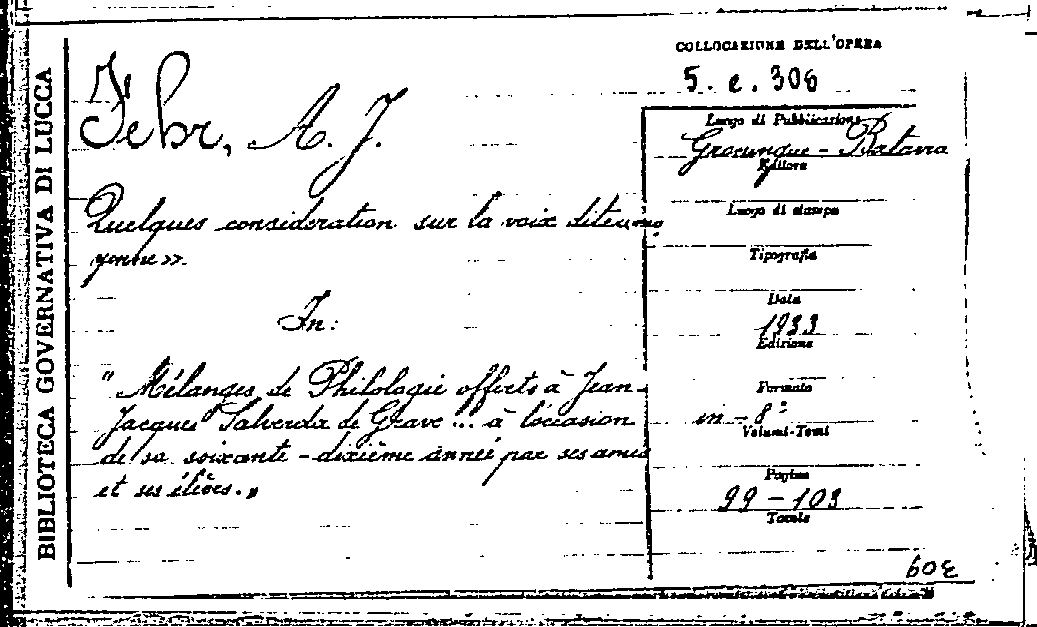 BIBLIOTECA GOVERNATIVA DI LUCCA
Fehr, A. J.
Quelques consideration sur la voix
».
In:
"Mélanges de Philologie offerts à Jean-
Jacques Salverda de Grave... à l'occasion
de sa soixante-dixième année par ses amis
et ses élèves."
COLLOCAZIONE DELL'OPERA
5. e. 306
Luogo di Pubblicazione
Groningue - Batavia
Editore
Luogo di stampa
Tipografia
Data
1933
Edizione
Formato
in-8°
Volumi-Tomi
Pagine
99-103
Tavole